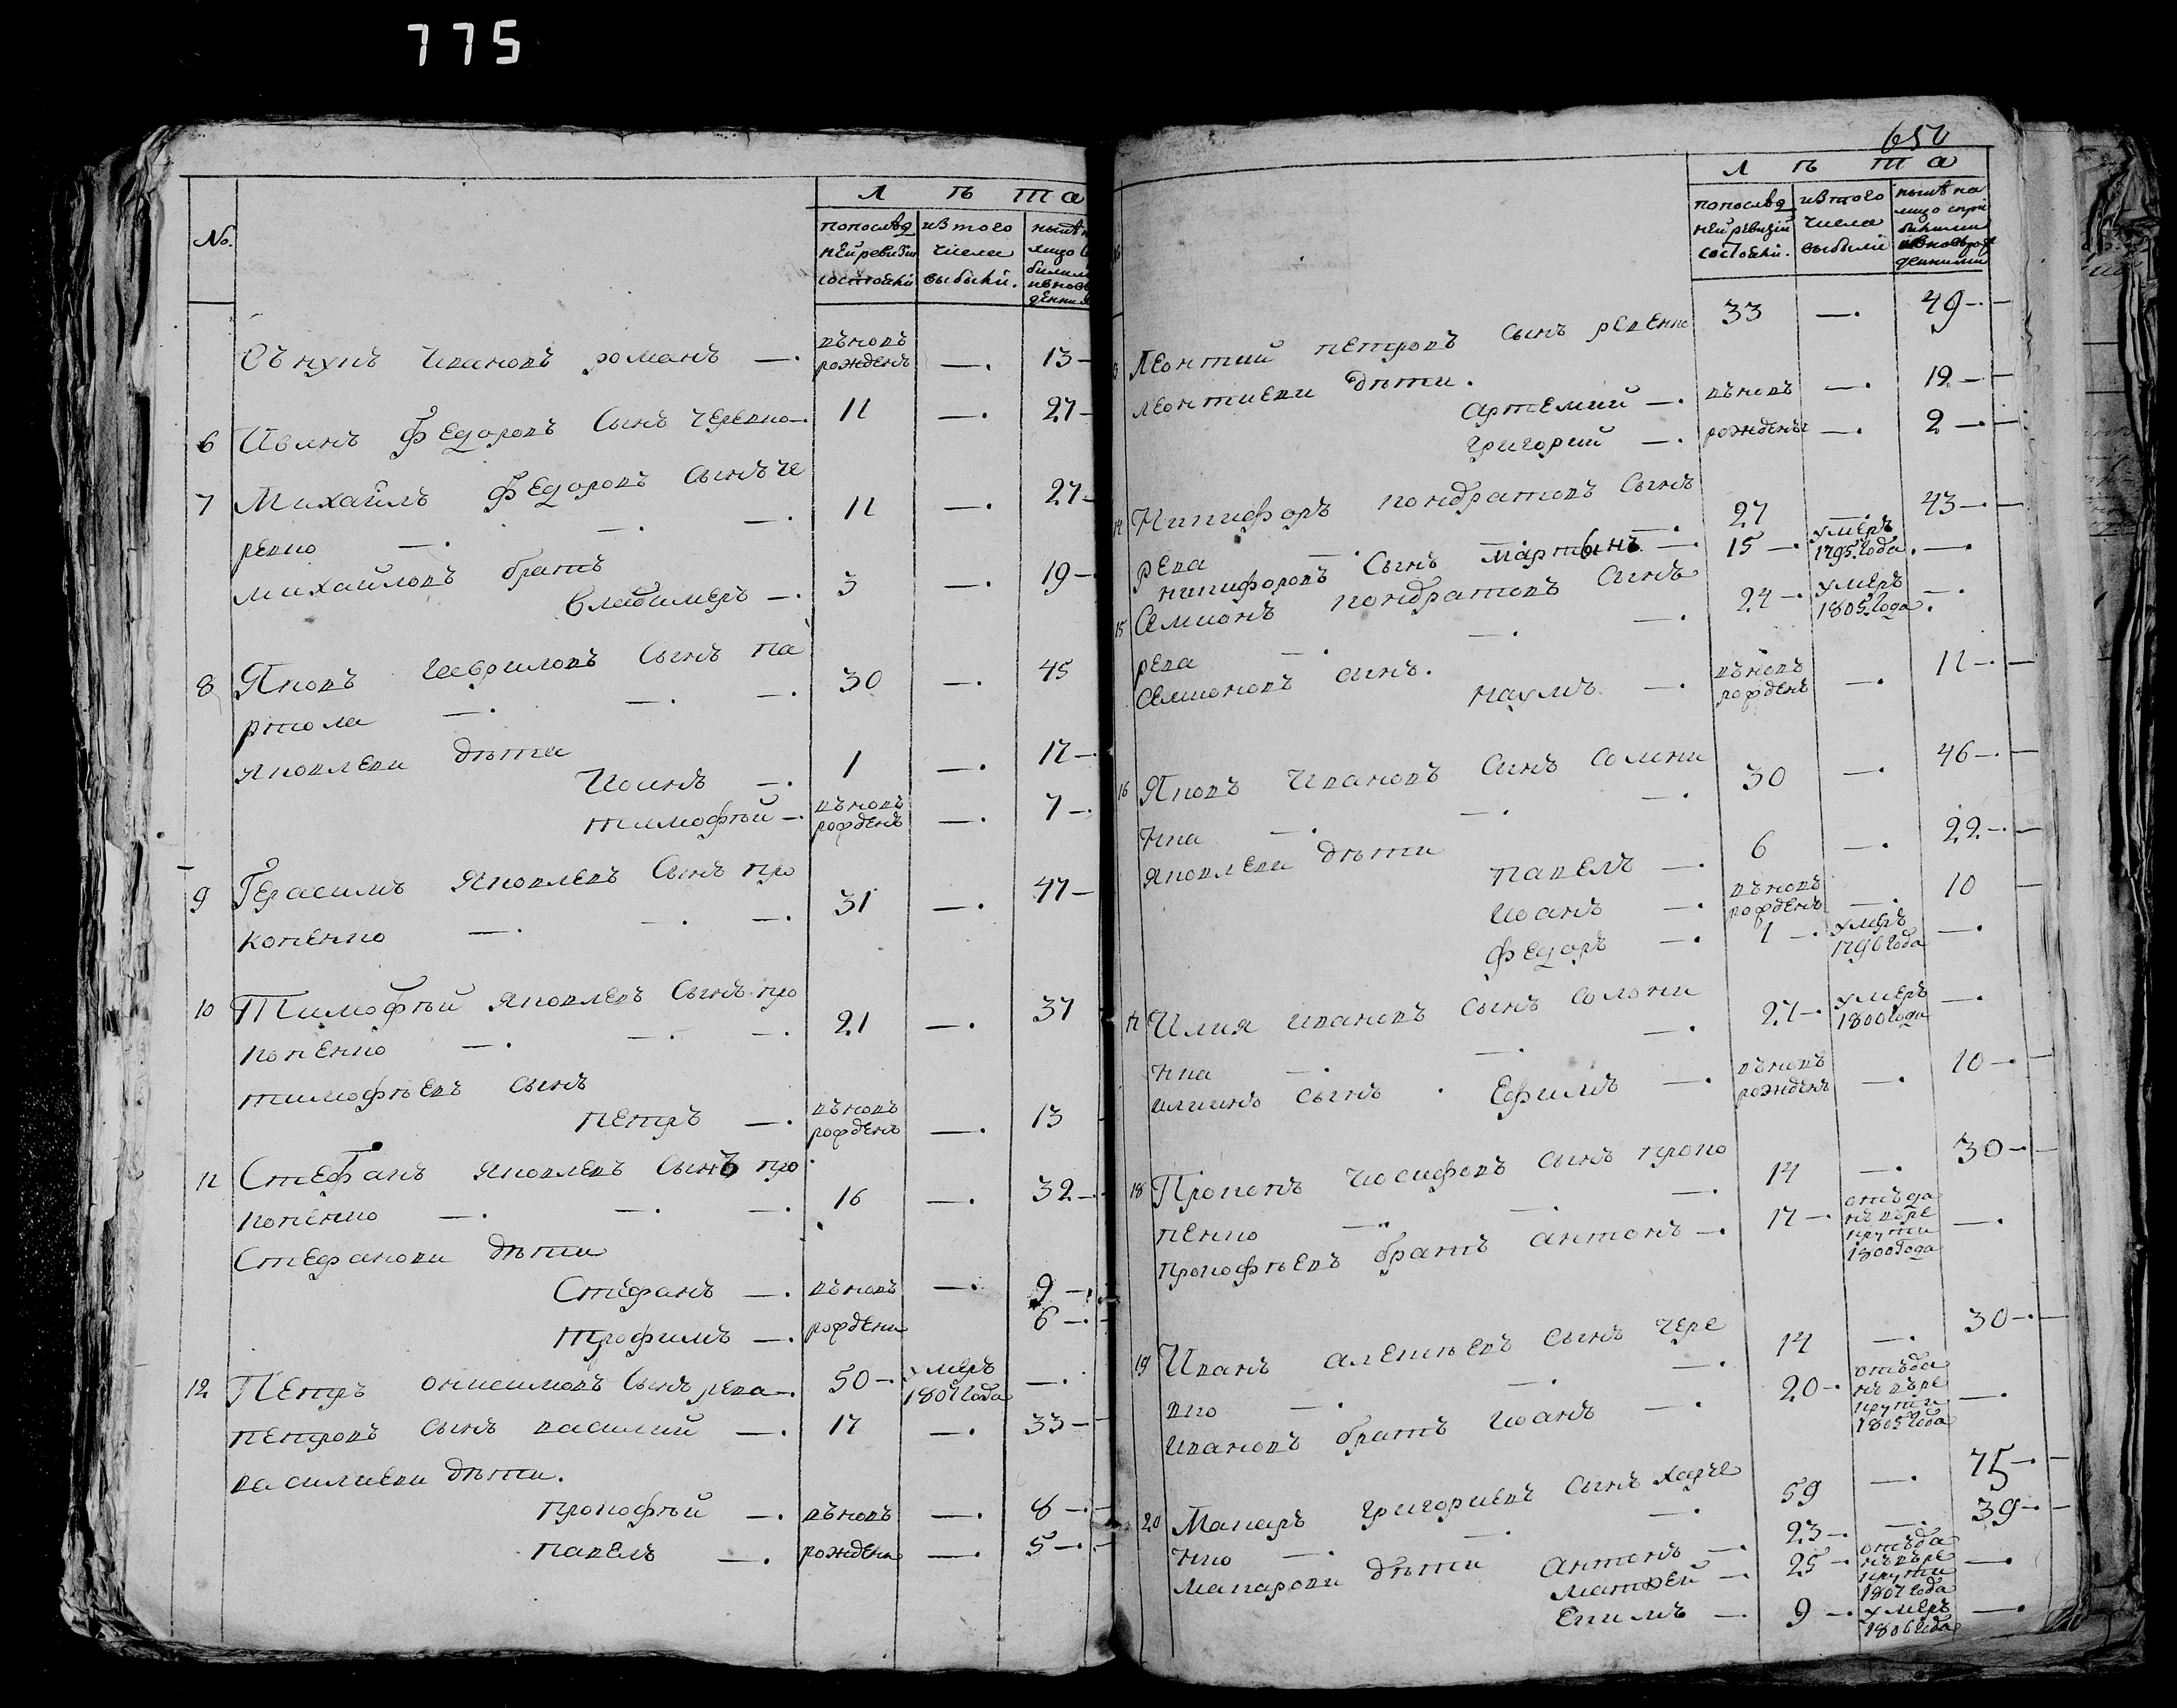 775
№
Л ѣ т а
попослѣд
ней ревизіи
состояли
изтого
числа
выбыли.
нынѣ н
лицо
Внукъ Ивановъ романъ —. въновь рожденъ —. 13 —
6 Иванъ Федоровъ Сынъ черевко —. 11 —. 27 —
7 Михайлъ Федоровъ Сынъ че
ревко —. —. —. 11 —. 27 —
михайловъ братъ
владимеръ —. 3 —. 19 —
8 Яковъ Гавриловъ Сынъ па
ртола —. —. —. 30 —. 45
яковлеви дѣти
Иоанъ —. 1 —. 17 —.
тимофѣй —. въновь рожденъ —. 7 —.
9 Герасимъ Яковлевъ Сынъ про
копенко —. —. —. 31 —. 47 —
10 Тимофѣй яковлевъ Сынъ про
копенко —. —. —. 21 —. 37
тимофѣевъ сынъ
петръ —. въновь рожденъ —. 13
11 Стефанъ яковлевъ Сынъ про
копенко —. —. —. 16 —. 32 —.
Стефанови дѣти
Стефанъ —. въновь —. 9 —.
трофимъ —. рождени 6 —.
12 Петръ онисимовъ Сынъ рева —. 50 —. умеръ 1807 года —.
петровъ сынъ василий —. 17 —. 33 —
василиеви дѣти.
прокофѣй —. въновь —. 8 —.
павелъ —. рождени —. 5 —.
650
Л ѣ т а
попослѣд
ней ревизіи
состояли.
изтого
числа
выбыли
нынѣ на
лицо спри
былими
ивновьрож
денними
13 Леонтий петровъ сынъ ревенко 33 —. 49 —.
леонтиеви дѣти.
артемий —. въновь —. 19 —
григорий —. рождены —. 2 —.
14 Никифоръ кондратовъ Сынъ
рева —. —. —. 27 —. 43 —.
никифоровъ Сынъ мартынъ —. 15 —. умеръ 1795 года. —.
15 Семионъ кондратовъ Сынъ
рева —. —. —. 24 —. умеръ 1805 года. —.
Семионовъ сынъ.
наумъ —. въновь рожденъ —. 11 —.
16 Яковъ Ивановъ Синъ солони
нка —. —. —. 30 —. 46 —.
яковлеви дѣти
павелъ —. 6 —. 22 —.
иоанъ —. въновь рожденъ —. 10 —
федоръ —. 1 —. умеръ 1796 года —.
17 Илия ивановъ сынъ солони
нка —. —. —. 27 —. умеръ 1800 года —.
илиинъ сынъ . Ефимъ —. въновь рожденъ —. 10 —.
18 Прокопъ иосифовъ сынъ проко
пенко —. —. —. 14 —. 30 —.
прокофѣевъ братъ антонъ —. 17 —. отъда нъ въре крути 1800 года —.
19 Иванъ алексѣевъ сынъ чере
вко —. —. —. 14 —. 30 —.
ивановъ братъ иоанъ —. 20 —. отъда нъ въре крути 1805 года —.
20 Макаръ григориевъ сынъ харче
нко —. —. —. 59 —. 75 —.
макарови дѣти антонъ —. 23 —. —. 39 —.
матфей —. 25 —. отъда нъ въре крути 1807 года —.
Екимъ —. 9 —. умеръ 1806 года —.